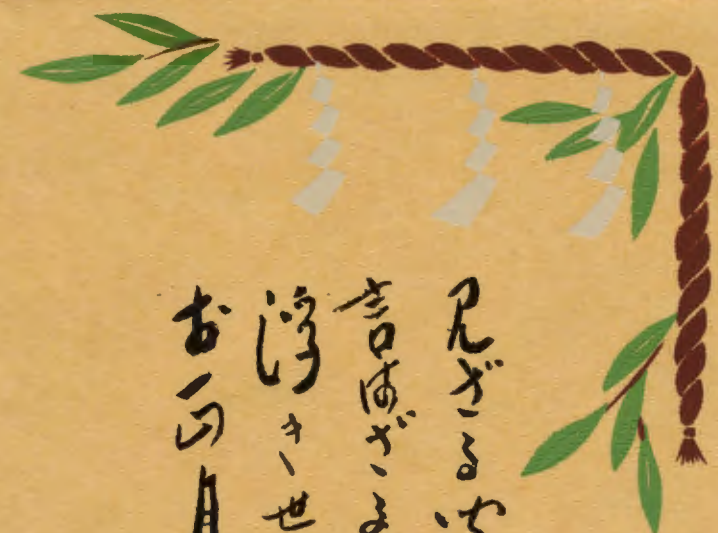 見ざる
言はざる
浮き世
お正月